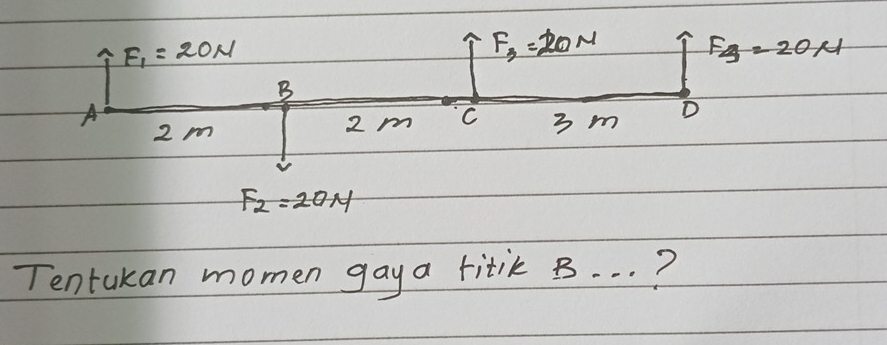 F₁ = 20 N
F₃ = 20 N
F₃ = 20 N
A
B
C
D
2 m
2 m
3 m
F₂ = 20 N
Tentukan momen gaya titik B...?